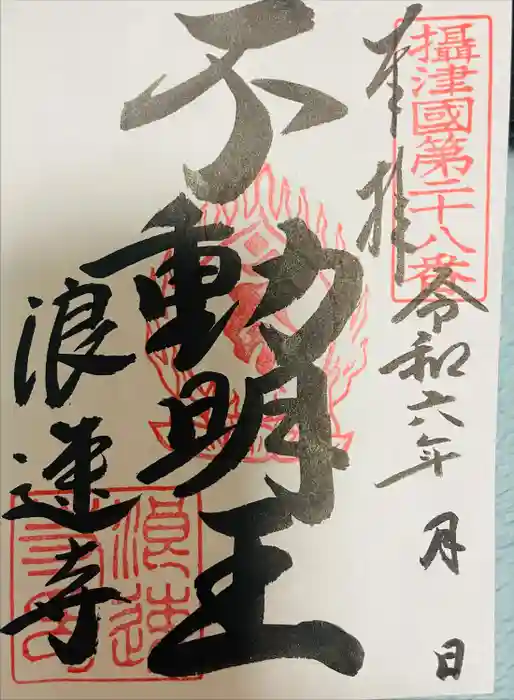 攝津國第二十八番
奉拝
令和六年 月 日
不動明王
浪速寺